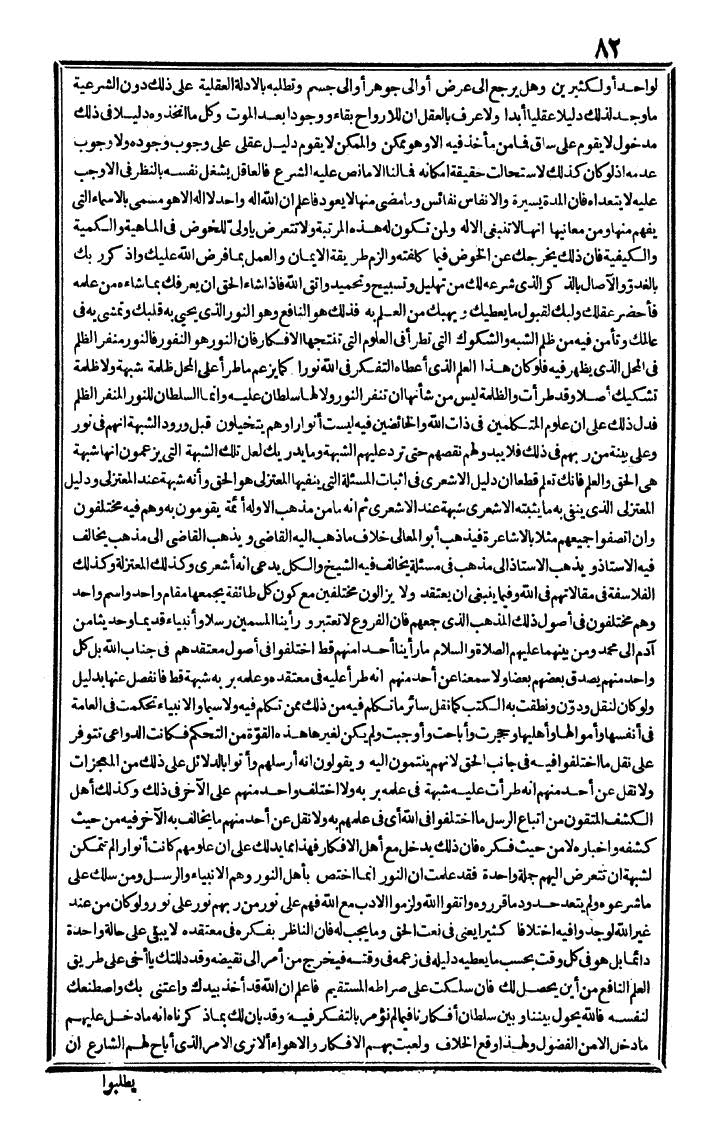 ٨٢
لواحد أو لكثيرين وهل يرجع الى عرض أو الى جوهر أو الى جسم وتطلبه بالادلة العقلية على ذلك دون الشرعية
ما وجد لذلك دليلا عقليا أبدا ولا عرف بالعقل ان للارواح بقاء ووجودا بعد الموت وكل ما اتخذوه دليلا فى ذلك
مدخول لا يقوم على ساق فامن مأخذ فيه الا وهو ممكن والممكن لا يقوم دليل عقلى على وجوب وجوده ولا وجوب
عدمه اذ لو كان كذلك لاستحالت حقيقة امكانه فالنا الا ما نص عليه الشرع فالعاقل يشغل نفسه بالنظر فى الاوجب
عليه لا يتعداه فان المدة يسيرة والانفاس نفائس وما مضى منها لا يعود فاعلم ان الله اله واحد لا اله الا هو مسمى بالاسماء التى
يفهم منها ومن معانيها انها لا تنبغى الا له ولمن تكون له هذه المرتبة ولا تتعرض ياولى للخوض فى الماهية والكمية
والكيفية فان ذلك يخرجك عن الخوض فيما كلفته والزم طريقة الايمان والعمل بما فرض الله عليك واذكر ربك
بالغدو والآصال بالذكر الذى شرعه لك من تهليل وتسبيح وتحميد واتق الله فاذا شاء الحق ان يعرفك بما شاءه من علمه
فأحضر عقلك ولبك لقبول ما يعطيك ويهبك من العلم به فذلك هو النافع وهو النور الذى يحيى به قلبك وتمشى به فى
عالمك وتأمن فيه من ظلم الشبه والشكوك التى تطرأ فى العلوم التى تنتجها الافكار فان النور هو النفور فالنور منفر الظلم
فى المحل الذى يظهر فيه فلو كان هذا العلم الذى أعطاه التفكر فى الله نورا كما يزعم ما طرأ على المحل ظلمة شبهة ولا ظلمة
تشكيك أصلا وقد طرأت والظلمة ليس من شأنها ان تنفر النور ولا لها سلطان عليه وانما السلطان للنور المنفر الظلم
فدل ذلك على ان علوم المتكلمين فى ذات الله والخائضين فيه ليست أنوارا وهم يتخيلون قبل ورود الشبهة انهم فى نور
وعلى بينة من ربهم فى ذلك فلا يبدو لهم نقصهم حتى ترد عليهم الشبهة وما يدريك لعل تلك الشبهة التى يزعمون انها شبهة
هى الحق والعلم فانك تعلم قطعا ان دليل الاشعرى فى اثبات المسئلة التى ينفيها المعتزلى هو الحق وأنه شبهة عند المعتزلى ودليل
المعتزلى الذى ينفى به ما يثبته الاشعرى شبهة عند الاشعرى ثم انه ما من مذهب الا وله أئمة يقومون به وهم فيه مختلفون
وان اتصفوا جميعهم مثلا بالاشاعرة فيذهب أبو المعالى خلاف ما ذهب اليه القاضى ويذهب القاضى الى مذهب يخالف
فيه الاستاذ ويذهب الاستاذ الى مذهب فى مسئلة يخالف فيه الشيخ والكل يدعى انه أشعرى وكذلك المعتزلة وكذلك
الفلاسفة فى مقالاتهم فى الله وفيما ينبغى ان يعتقد ولا يزالون مختلفين مع كون كل طائفة يجمعها مقام واحد واسم واحد
وهم مختلفون فى أصول ذلك المذهب الذى جمعهم فان الفروع لا تعتبر ورأينا المسمين رسلا وأنبياء قديما وحديثا من
آدم الى محمد ومن بينهما عليهم الصلاة والسلام ما رأينا أحدا منهم قط اختلفوا فى أصول معتقدهم فى جناب الله بل كل
واحد منهم يصدق بعضهم بعضا ولا سمعنا عن أحد منهم انه طرأ عليه فى معتقده وعلمه بربه شبهة قط فانفصل عنها بدليل
ولو كان لنقل ودون ونطقت به الكتب كما نقل سائر ما تكلم فيه من ذلك ممن تكلم فيه ولا سيما والانبياء تحكمت فى العامة
فى أنفسها وأموالها وأهليها وحجرت وأباحت وأوجبت ولم يكن لغيرها هذه القوة من التحكم فكانت الدواعى تتوفر
على نقل ما اختلفوا فيه فى جانب الحق لانهم ينتمون اليه ويقولون انه أرسلهم وأتوا بالدلائل على ذلك من المعجزات
ولا نقل عن أحد منهم انه طرأت عليه شبهة فى علمه بربه ولا اختلف واحد منهم على الآخر فى ذلك وكذلك أهل
الكشف المتقون من اتباع الرسل ما اختلفوا فى الله أى فى علمهم به ولا نقل عن أحد منهم ما يخالف به الآخر فيه من حيث
كشفه واخباره لا من حيث فكره فان ذلك يدخل مع أهل الافكار فهذا مما يدلك على ان علومهم كانت أنوارا لم تتمكن
لشبهة ان تتعرض اليهم جملة واحدة فقد علمت ان النور انما اختص بأهل النور وهم الانبياء والرسل ومن سلك على
ما شرعوه ولم يتعد حدود ما قرروه واتقوا الله ولزموا الادب مع الله فهم على نور من ربهم نور على نور ولو كان من عند
غير الله لوجدوا فيه اختلافا كثيرا يعنى فى نعت الحق وما يجب له فان الناظر بفكره فى معتقده لا يبقى على حالة واحدة
دائما بل هو فى كل وقت بحسب ما يعطيه دليله فى زعمه فى وقته فيخرج من أمر الى نقيضه وقد دللتك يا أخى على طريق
العلم النافع من أين يحصل لك فان سلكت على صراطه المستقيم فاعلم ان الله قد أخذ بيدك واعتنى بك واصطنعك
لنفسه فالله يحول بيننا وبين سلطان أفكارنا فيما لم نؤمر بالتفكر فيه وقد بان لك بما ذكرناه انه ما دخل عليهم
ما دخل الا من الفضول ولهذا وقع الخلاف ولعبت بهم الافكار والاهواء ألا ترى الامر الذى أباح لهم الشارع ان
يطلبوا